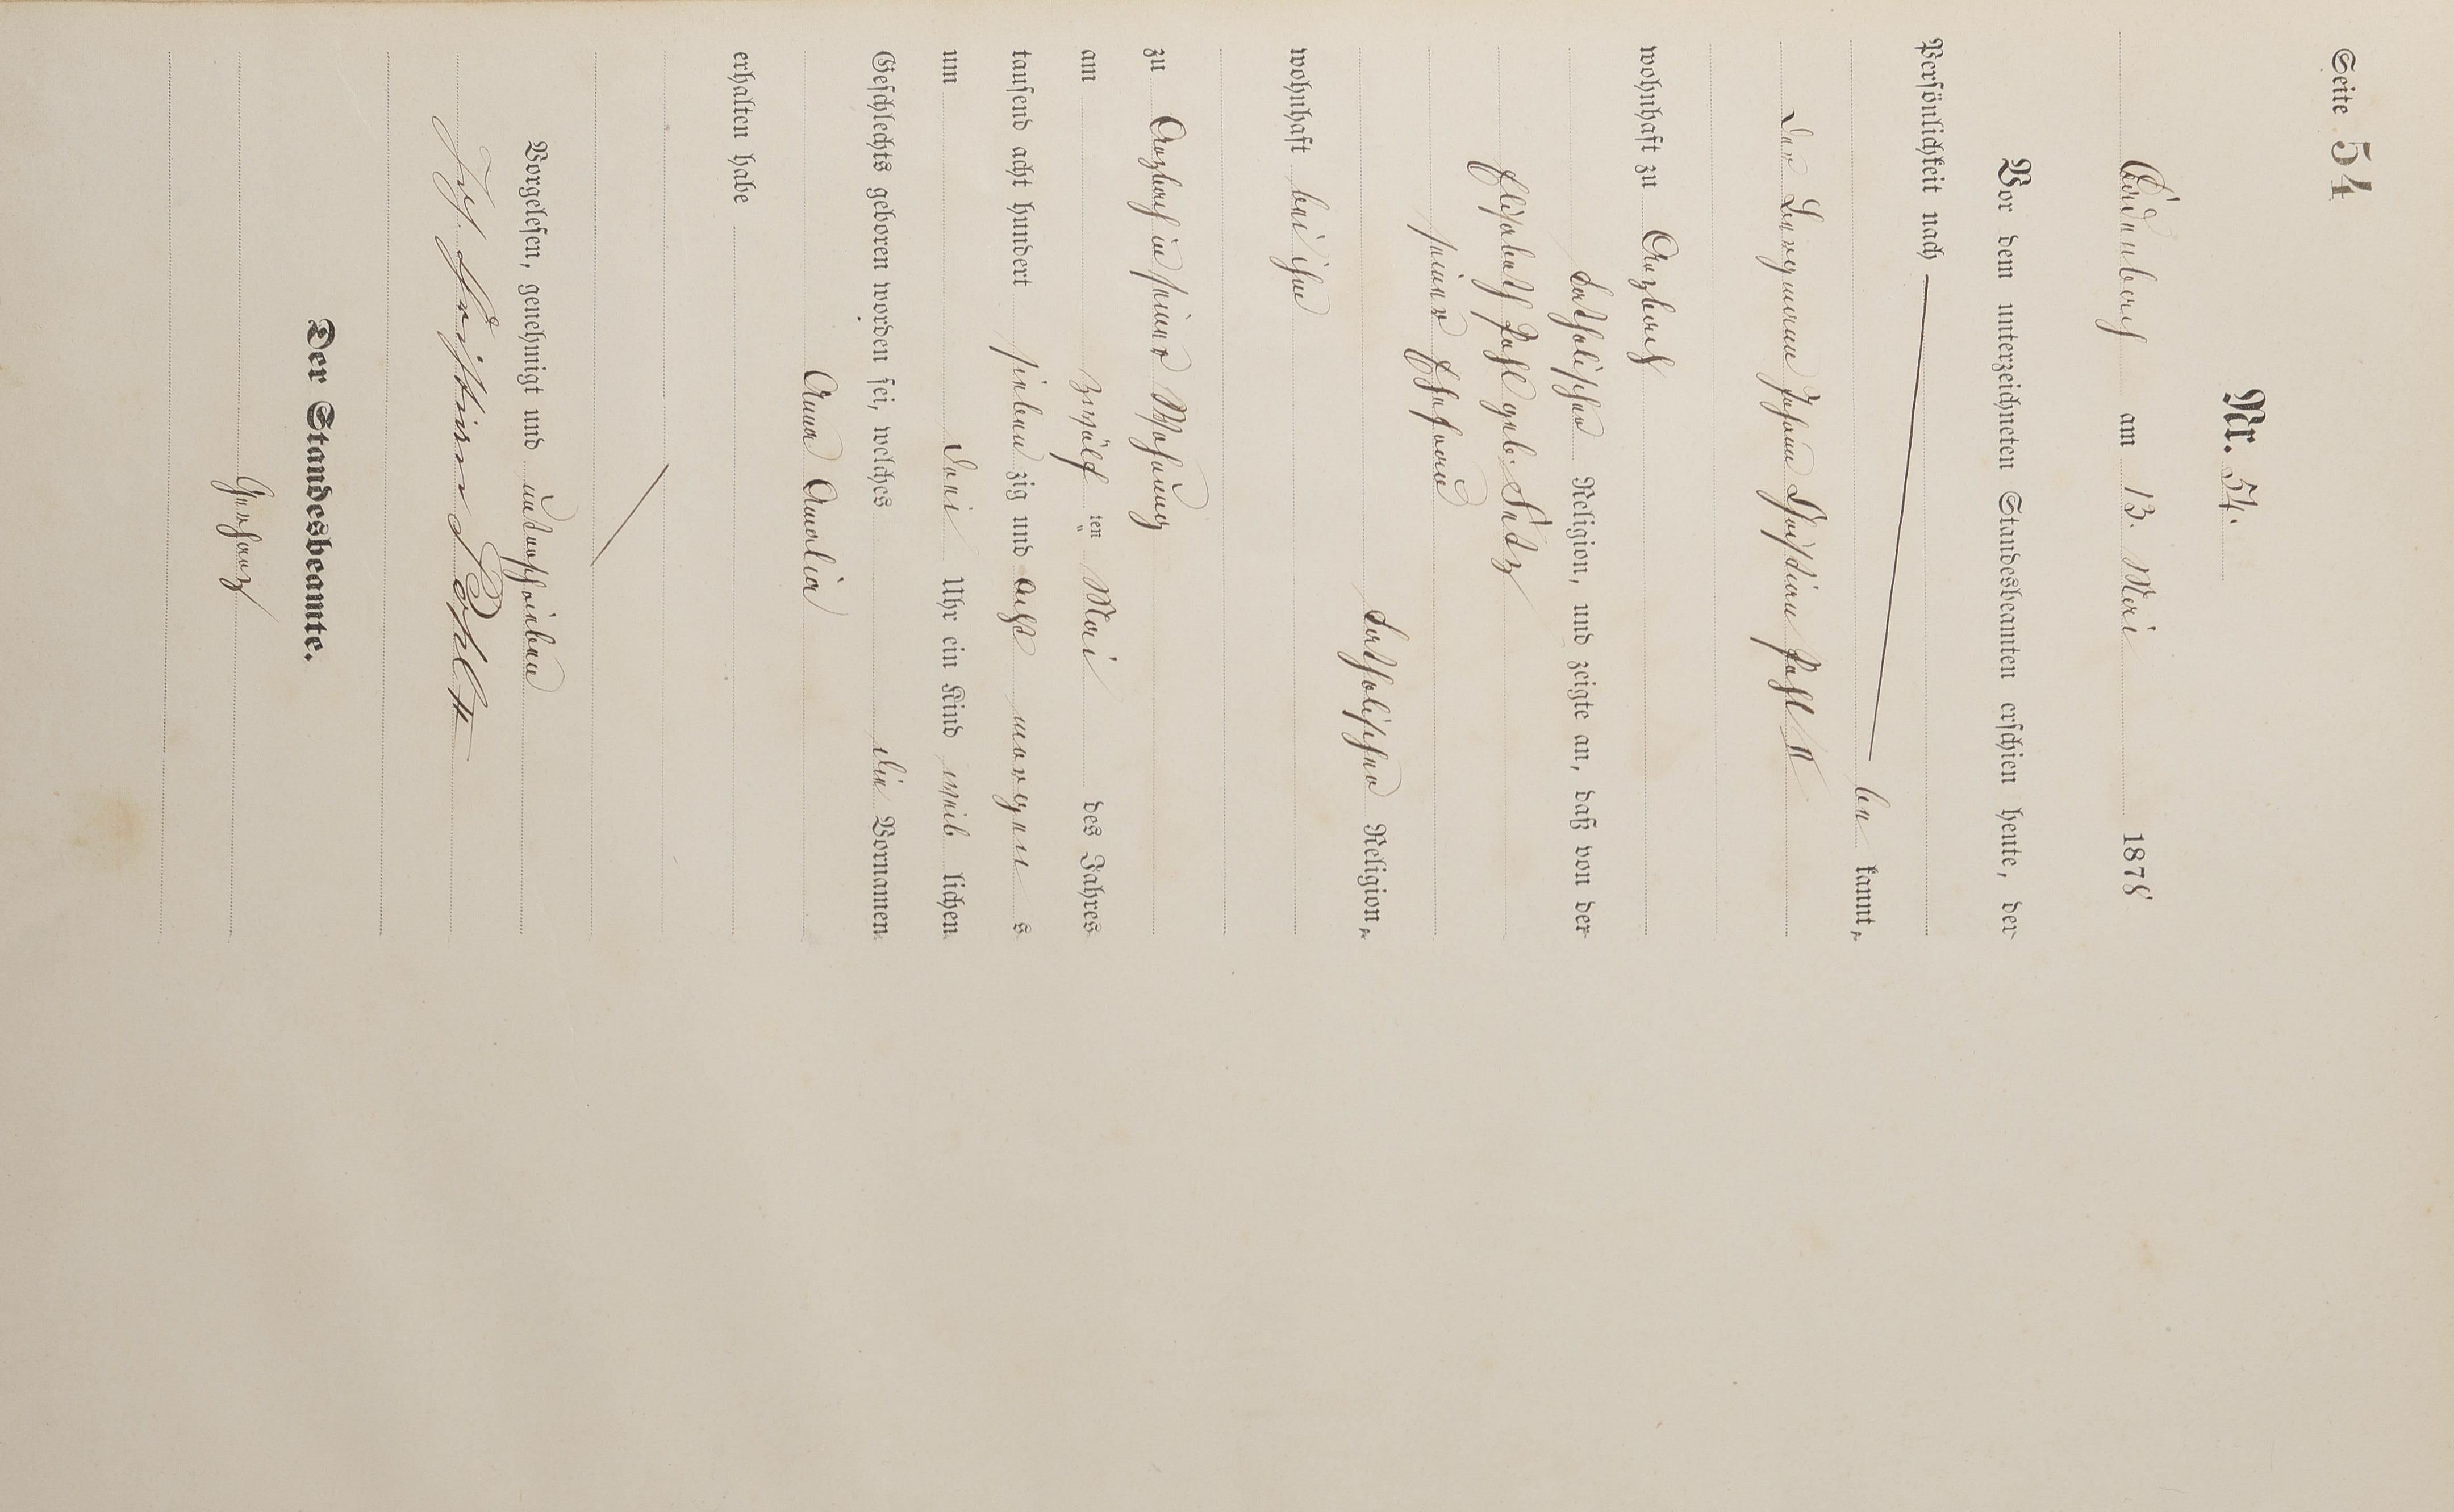 Seite 54
Nr. 54.
am 13. Mai 1878
Vor dem unterzeichneten Standesbeamten erschien heute, der
Persönlichkeit nach
be kannt,
der Bergmann Johann Christian Pohl II
wohnhaft zu Anzbach
katholischer Religion, und zeigte an, daß von der
Elisabeth Pohl geb.
seiner Ehefrau
katholischer Religion,
wohnhaft bei ihm
zu Anzbach in seiner Wohnung
am zwölf ten Mai des Jahres
tausend acht hundert sieben zig und acht morgen s
um drei Uhr ein Kind weib lichen
Geschlechts geboren worden sei, welches die Vornamen
Anna Amalia
erhalten habe
Vorgelesen, genehmigt und unterschrieben
Joh. Christian Pohl II
Der Standesbeamte.